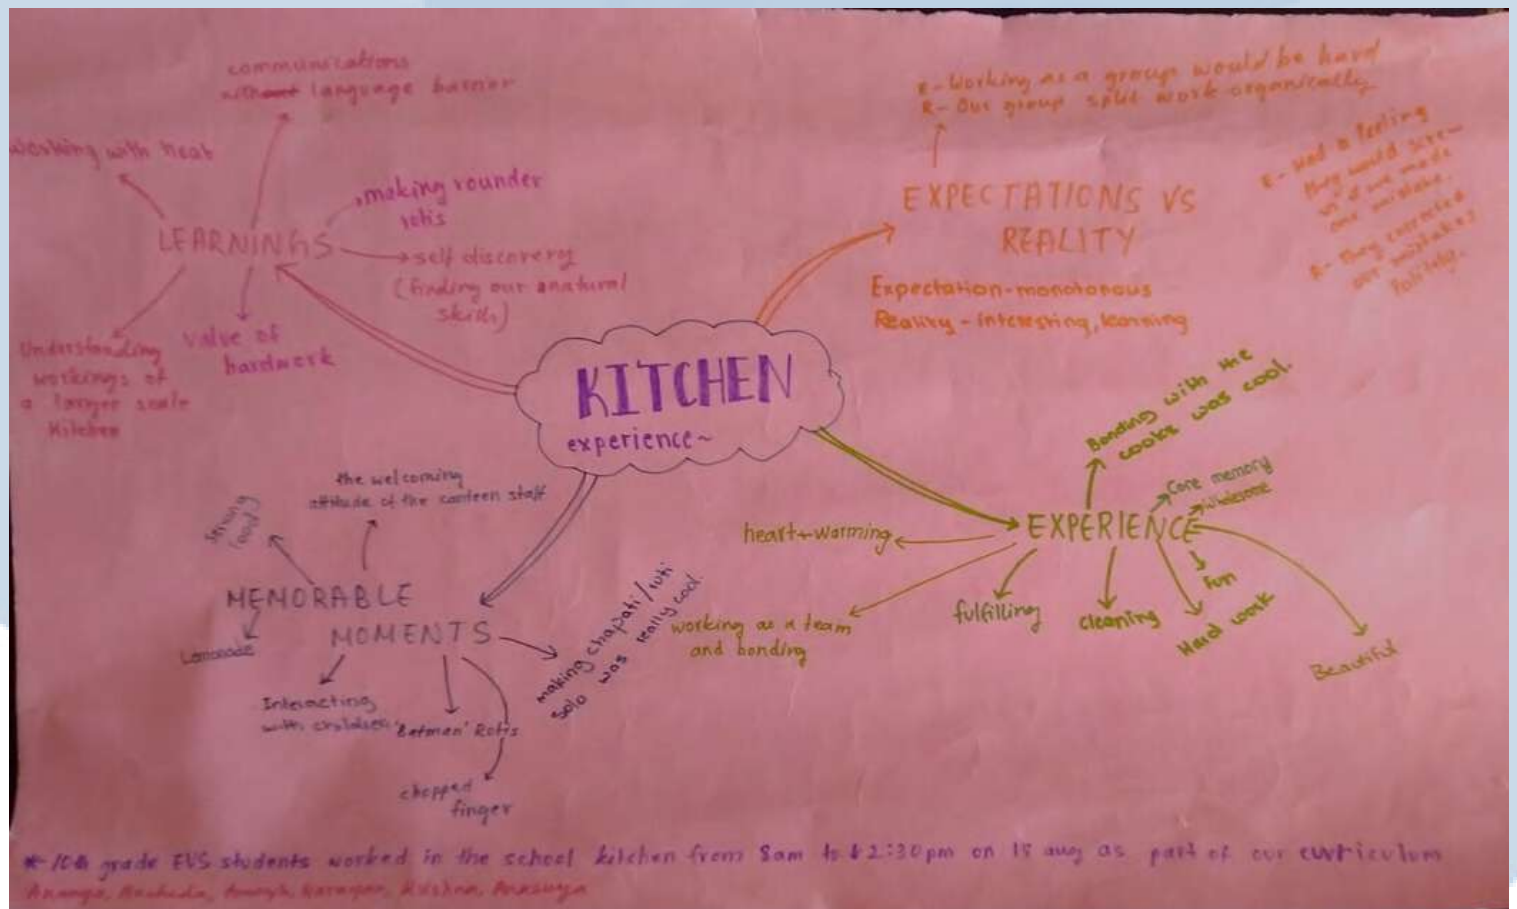 KITCHEN
experience~
LEARNINGS
communications
without language barrier
working with heat
making rounder
rotis
self discovery
(finding our natural
skills)
value of
hardwork
Understanding
workings of
a larger scale
Kitchen
EXPECTATIONS VS
REALITY
E - Working as a group would be hard
R - Our group split work organically
Expectation - monotonous
Reality - interesting, learning
E - Had a feeling
they would
we made
one mistake.
R - They corrected
our mistakes
Politely.
EXPERIENCE
Bonding with the
cooks was cool.
Core memory
Wholesome
heart-warming
working as a team
and bonding
fulfilling
cleaning
Fun
Hard work
Beautiful
MEMORABLE
MOMENTS
the welcoming
attitude of the canteen staff
food
Lemonade
Interacting
with children
'Batman' Rotis
chopped
finger
making chapati/roti
solo was really cool
* 10th grade EVS students worked in the school kitchen from 8am to 2:30pm on aug as part of our curriculum
Krishna, Anasuya